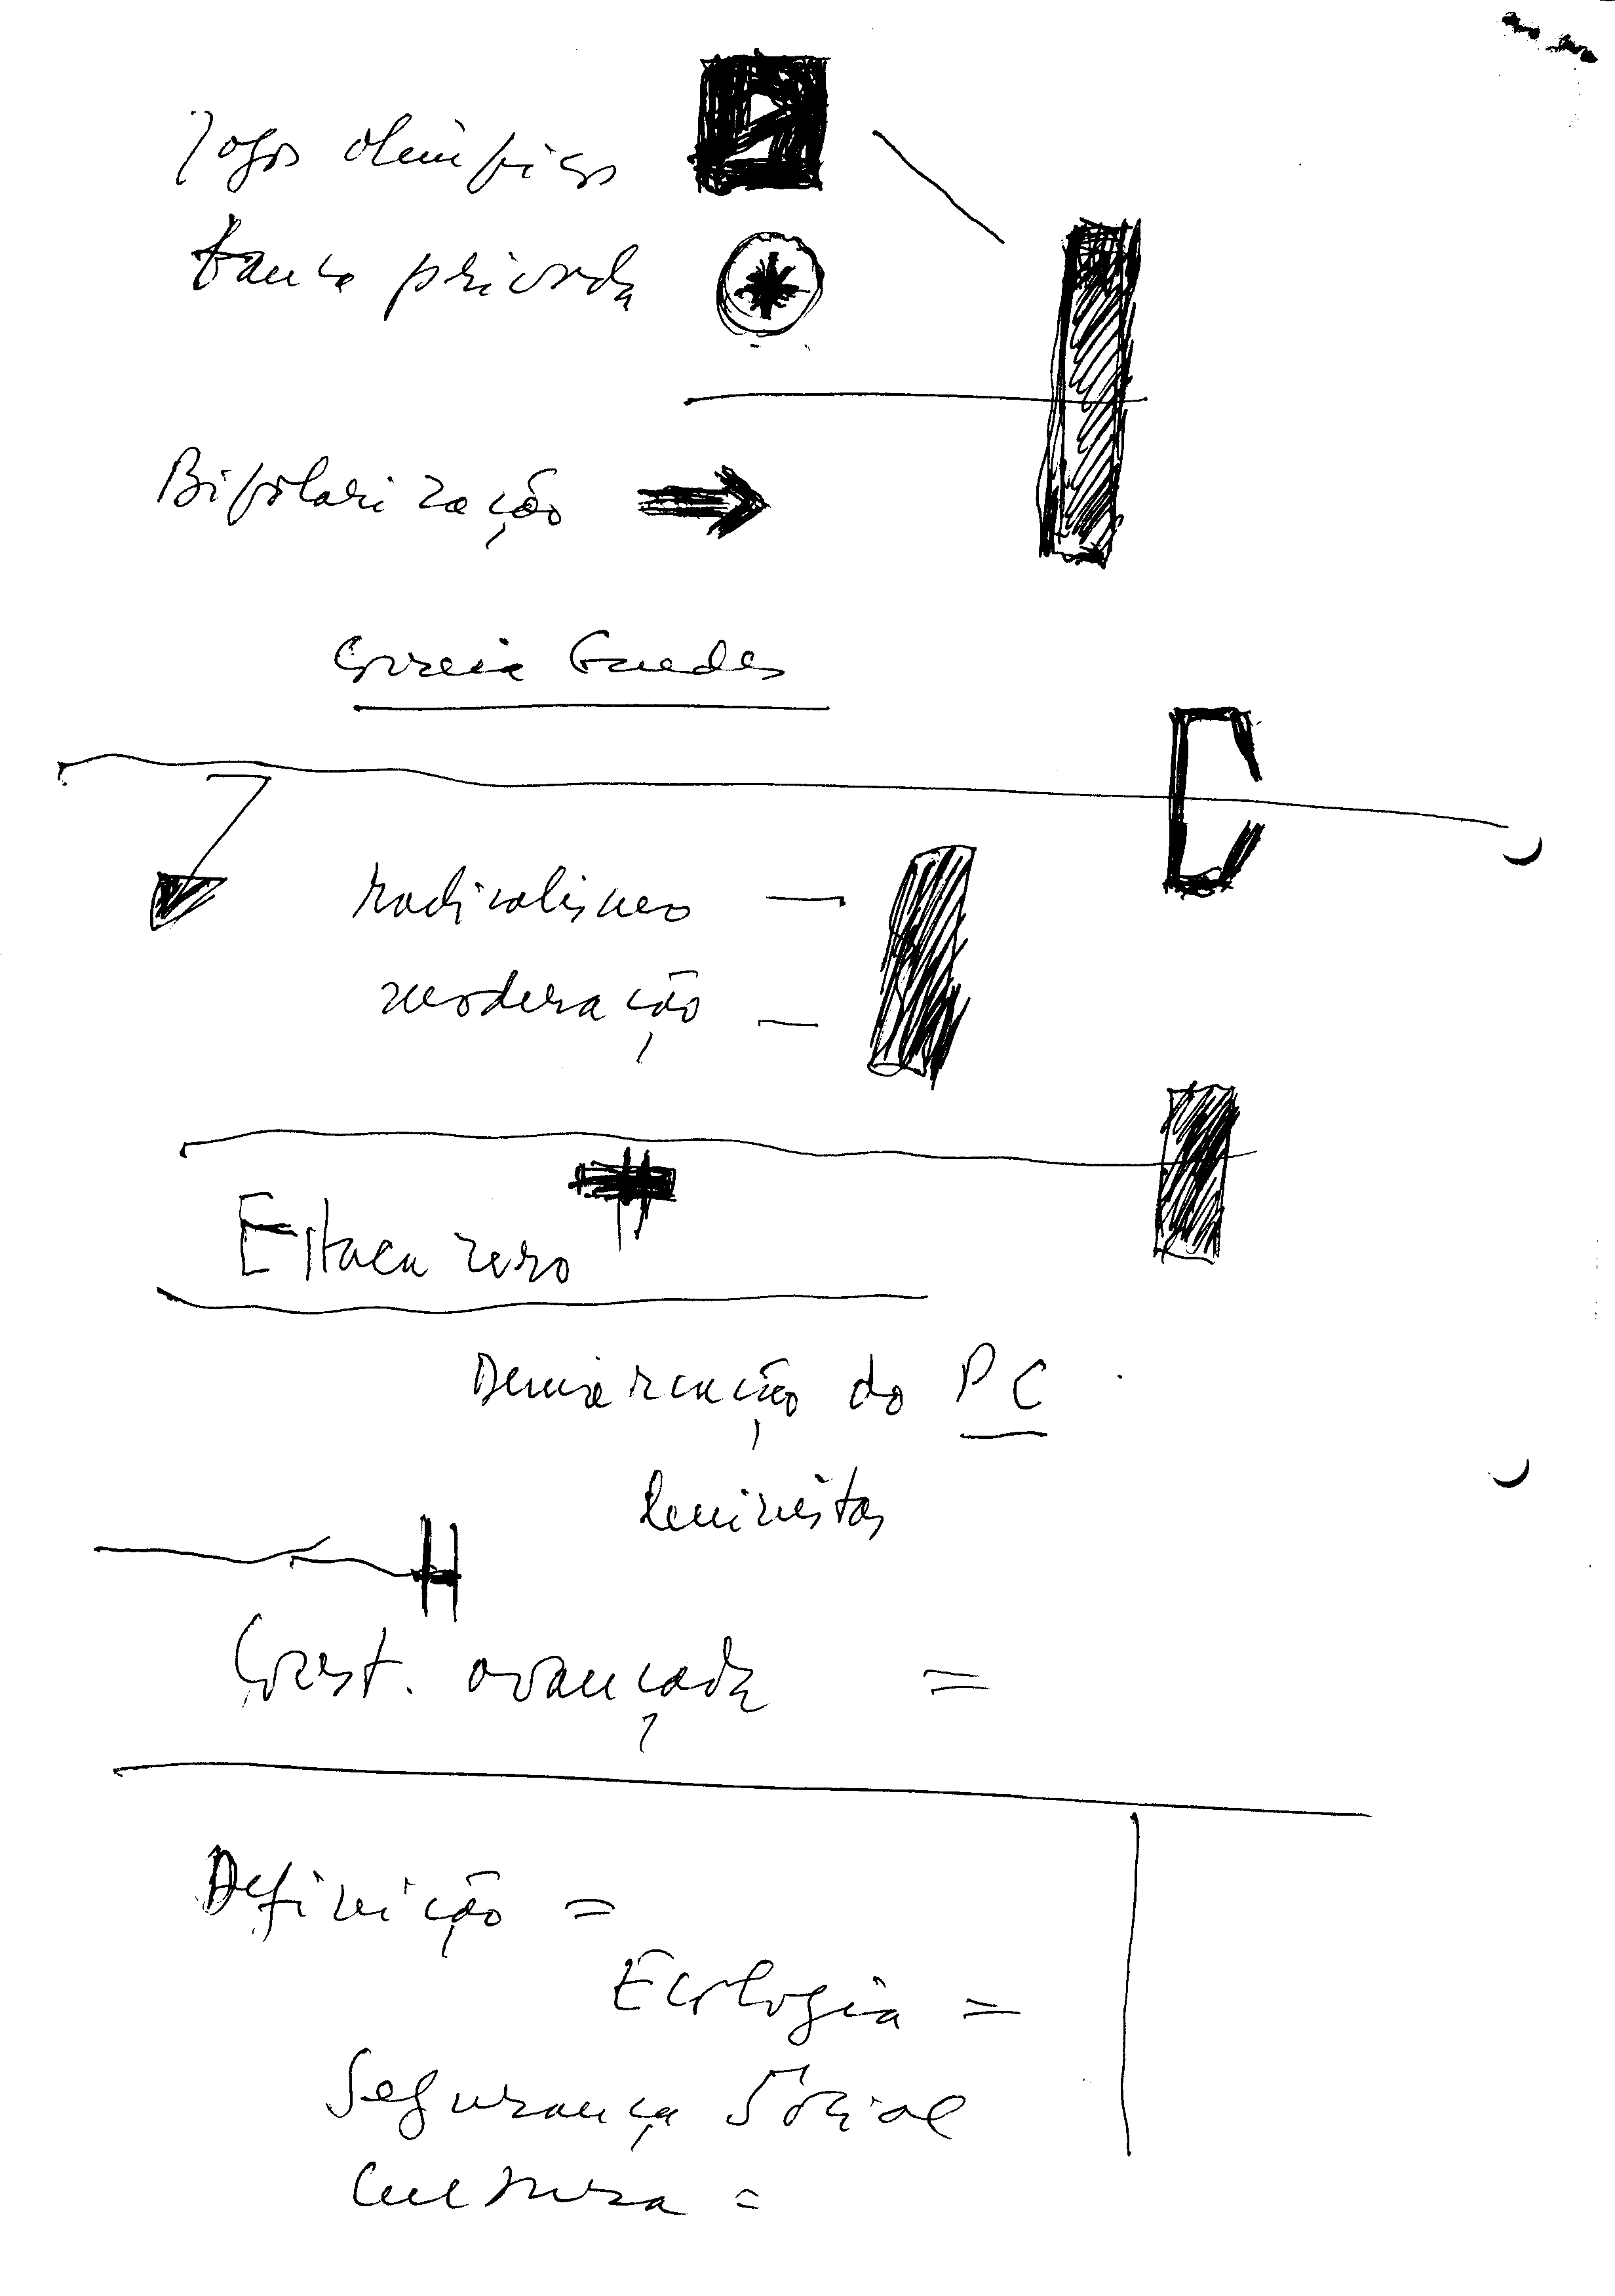 Jogos olímpicos
banca privada
Bipolarização
Correia Guedes
radicalismo —
moderação —
Estaca zero
Demarcação do PC
leninistas
Const. avançada =
Definição =
Ecologia =
Segurança Social
Cultura =